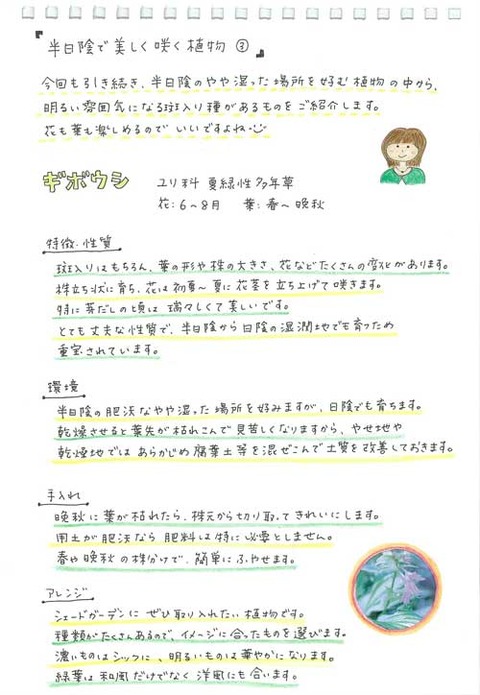 『半日陰で美しく咲く植物 ③』
今回も引き続き、半日陰のやや湿った場所を好む植物の中から、
明るい雰囲気になる斑入り種があるものをご紹介します。
花も葉も楽しめるのでいいですよね
ギボウシ ユリ科 夏緑性多年草
花:6~8月 葉:春~晩秋
特徴・性質
斑入りはもちろん、葉の形や株の大きさ、花などたくさんの変化があります。
株立ち状に育ち、花は初夏~夏に花茎を立ち上げて咲きます。
特に芽だしの頃は瑞々しくて美しいです。
とても丈夫な性質で、半日陰から日陰の湿潤地でも育つため
重宝されています。
環境
半日陰の肥沃なやや湿った場所を好みますが、日陰でも育ちます。
乾燥させると葉先が枯れこんで見苦しくなりますから、やせ地や
乾燥地ではあらかじめ腐葉土等を混ぜこんで土質を改善しておきます。
手入れ
晩秋に葉が枯れたら、株元から切り取ってきれいにします。
用土が肥沃なら肥料は特に必要としません。
春や晩秋の株分けで、簡単にふやせます。
アレンジ
シェードガーデンにぜひ取り入れたい植物です。
種類がたくさんあるので、イメージに合ったものを選びます。
濃いものはシックに、明るいものは華やかになります。
緑葉は和風だけでなく洋風にも合います。